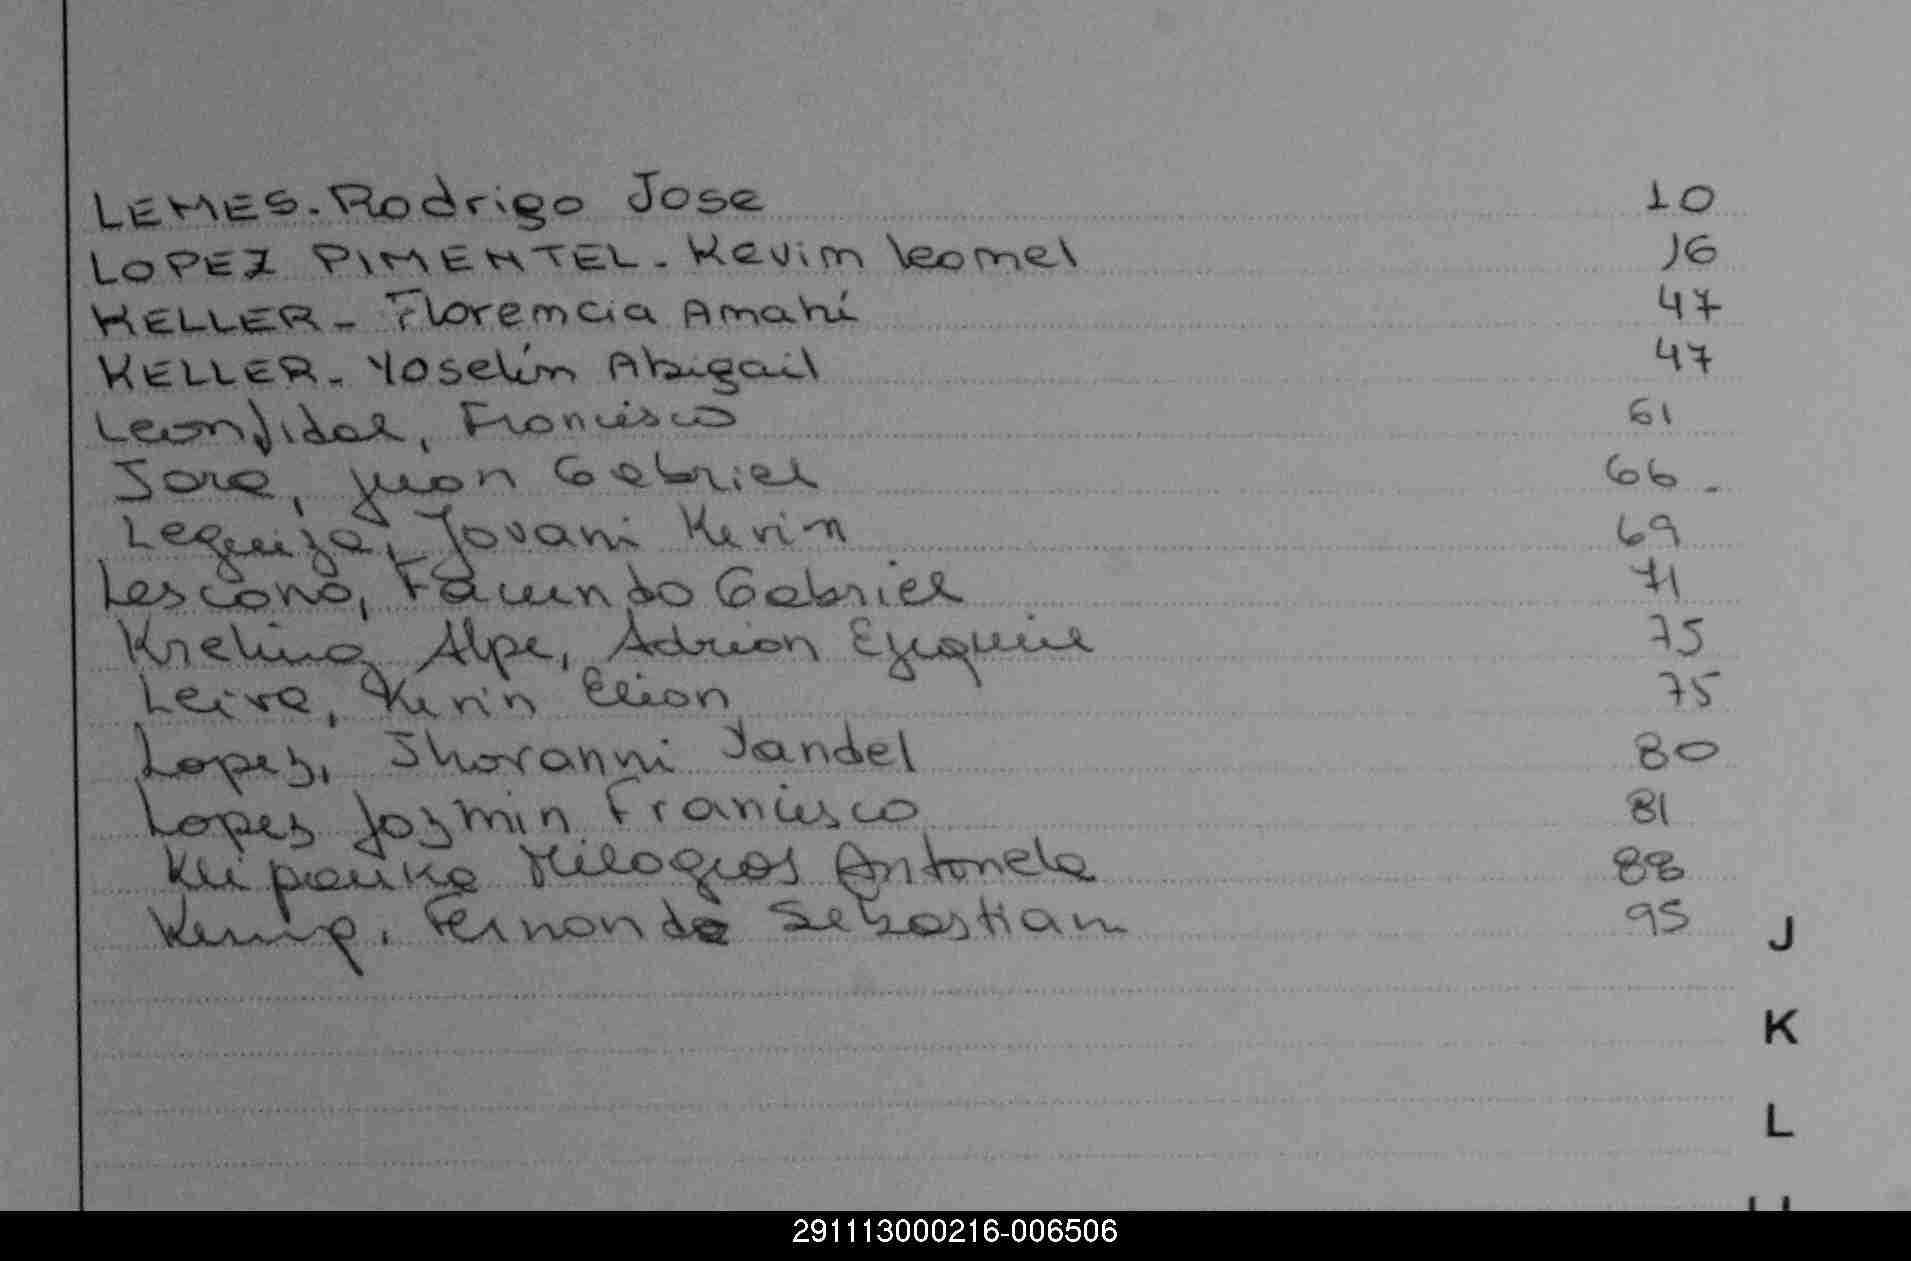 LEMES. Rodrigo Jose 10
LOPEZ PIMENTEL. Kevin Leonel 16
KELLER - Florencia Anahí 47
KELLER - Yoselín Abigail 47
Francisco 61
Jara, Juan Gabriel 66 -
Leguiza, Jovani Kevin 69
Lescano, Facundo Gabriel 71
Kreling Alpe, Adrian Ezequiel 75
Leiva, Kevin Elian 75
Lopez, Jhovanni Yandel 80
Lopez Jazmin Francisco 81
Milagros Antonela 88
Kemp, Sebastian 95
J
K
L
291113000216-006506